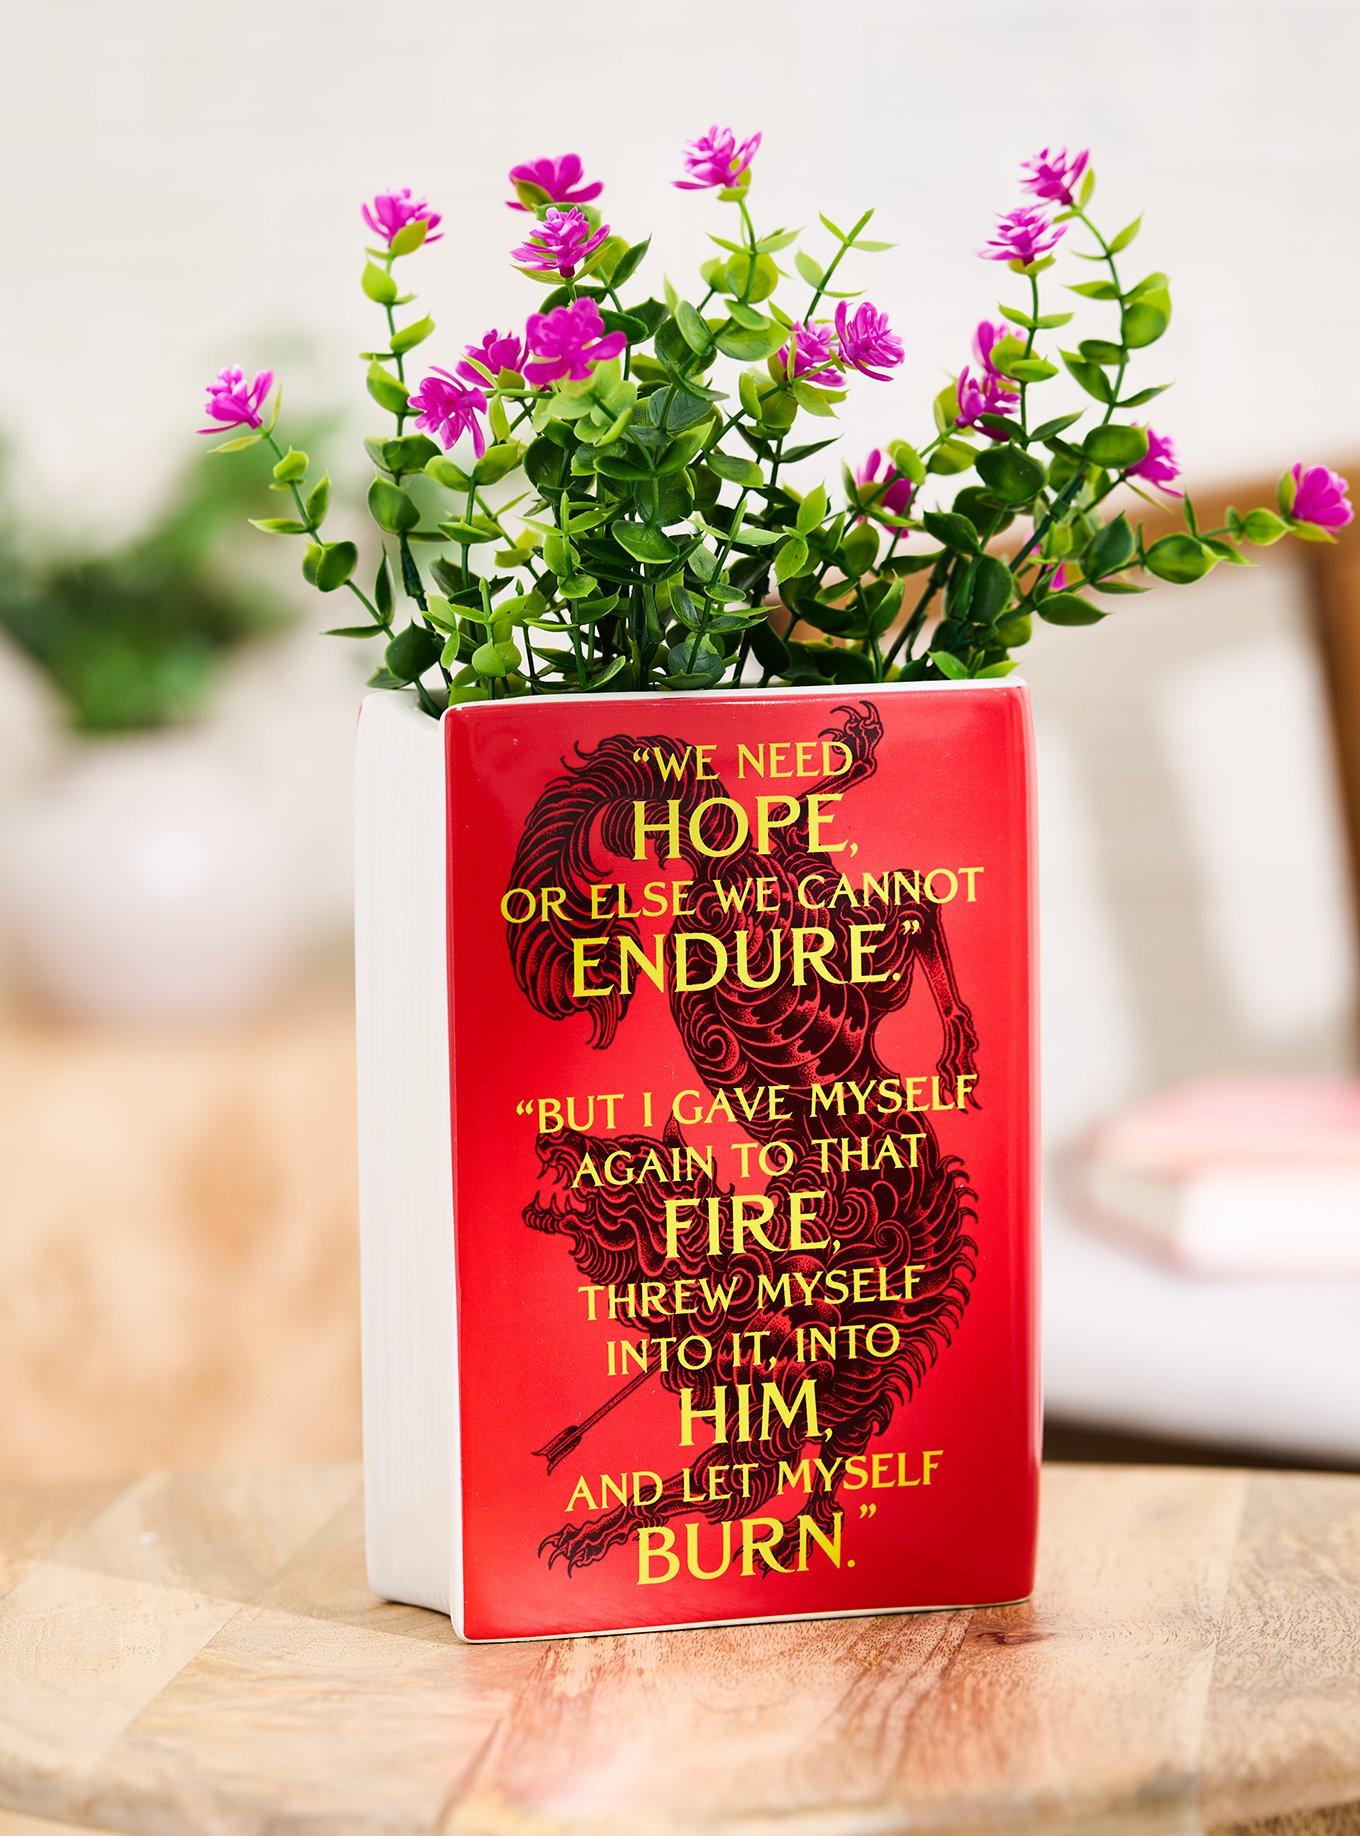 “WE NEED
HOPE,
OR ELSE WE CANNOT
ENDURE.”
“BUT I GAVE MYSELF
AGAIN TO THAT
FIRE,
THREW MYSELF
INTO IT, INTO
HIM,
AND LET MYSELF
BURN.”